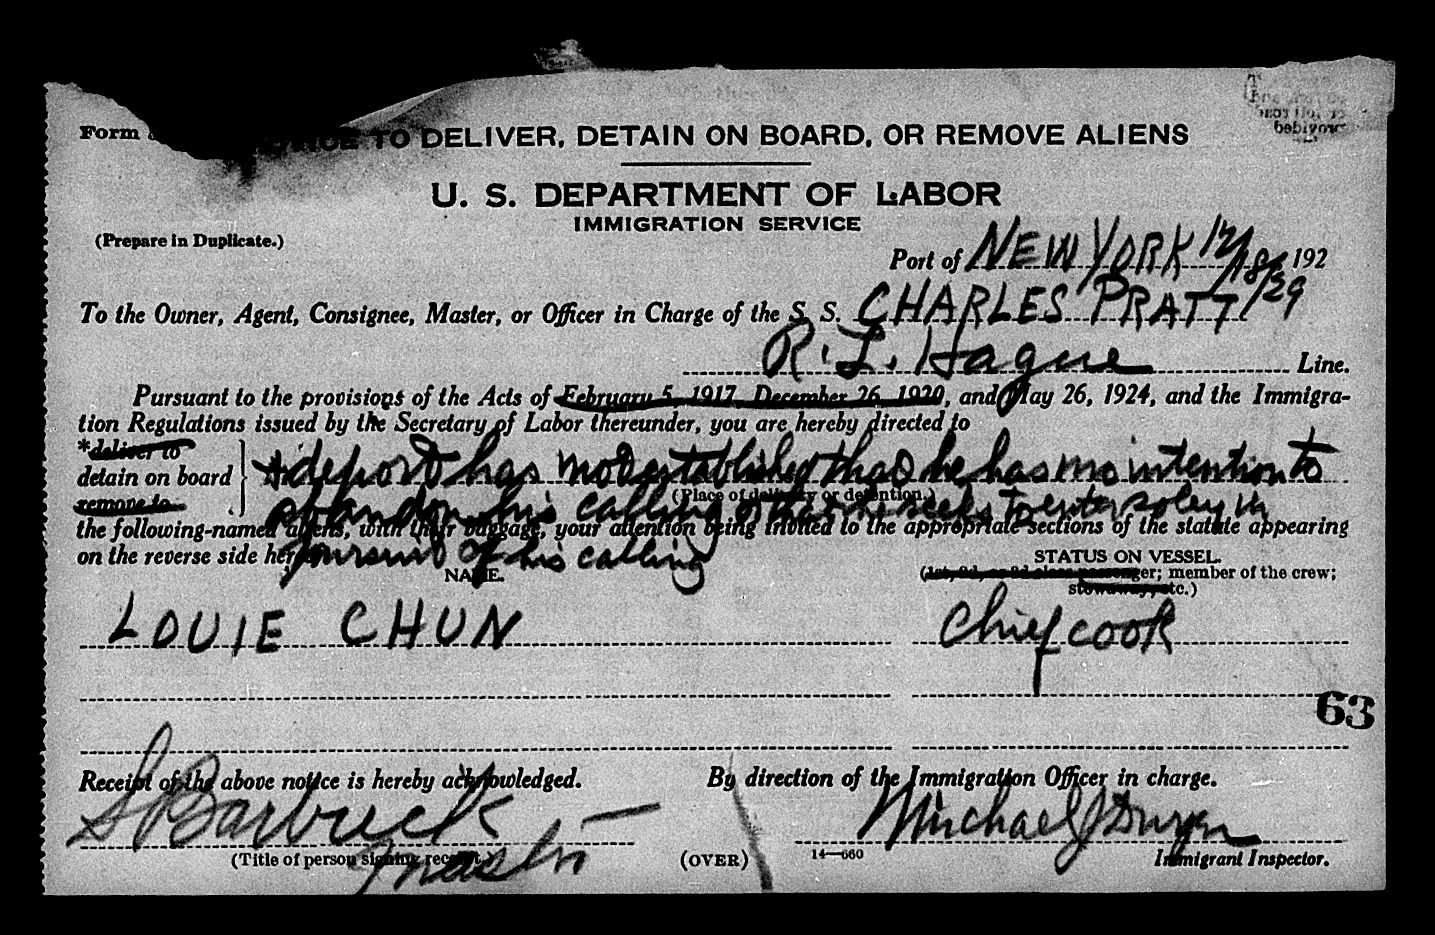 Form
NOTICE TO DELIVER, DETAIN ON BOARD, OR REMOVE ALIENS
U. S. DEPARTMENT OF LABOR
IMMIGRATION SERVICE
(Prepare in Duplicate.)
Port of NEW YORK 12/18/29, 192
To the Owner, Agent, Consignee, Master, or Officer in Charge of the S. S. CHARLES PRATT
R. L. Hague Line.
Pursuant to the provisions of the Acts of February 5, 1917, December 26, 1920, and May 26, 1924, and the Immigra-
tion Regulations issued by the Secretary of Labor thereunder, you are hereby directed to
*deliver to
detain on board
remove to
& deport has not established that he has no intention to
(Place of delivery or detention.)
abandon his calling or that he seeks to enter soley in
the following-named aliens, with their baggage, your attention being invited to the appropriate sections of the statute appearing
on the reverse side
pursuit of his calling
NAME.
STATUS ON VESSEL.
(1st, 2d, or 3d class passenger; member of the crew;
stowaway, etc.)
LOUIE CHUN Chief cook
63
Receipt of the above notice is hereby acknowledged.
By direction of the Immigration Officer in charge.
S Barbuck —
Master
Michael J Dwyer
(Title of person signing receipt.)
(OVER)
14—660
Immigrant Inspector.